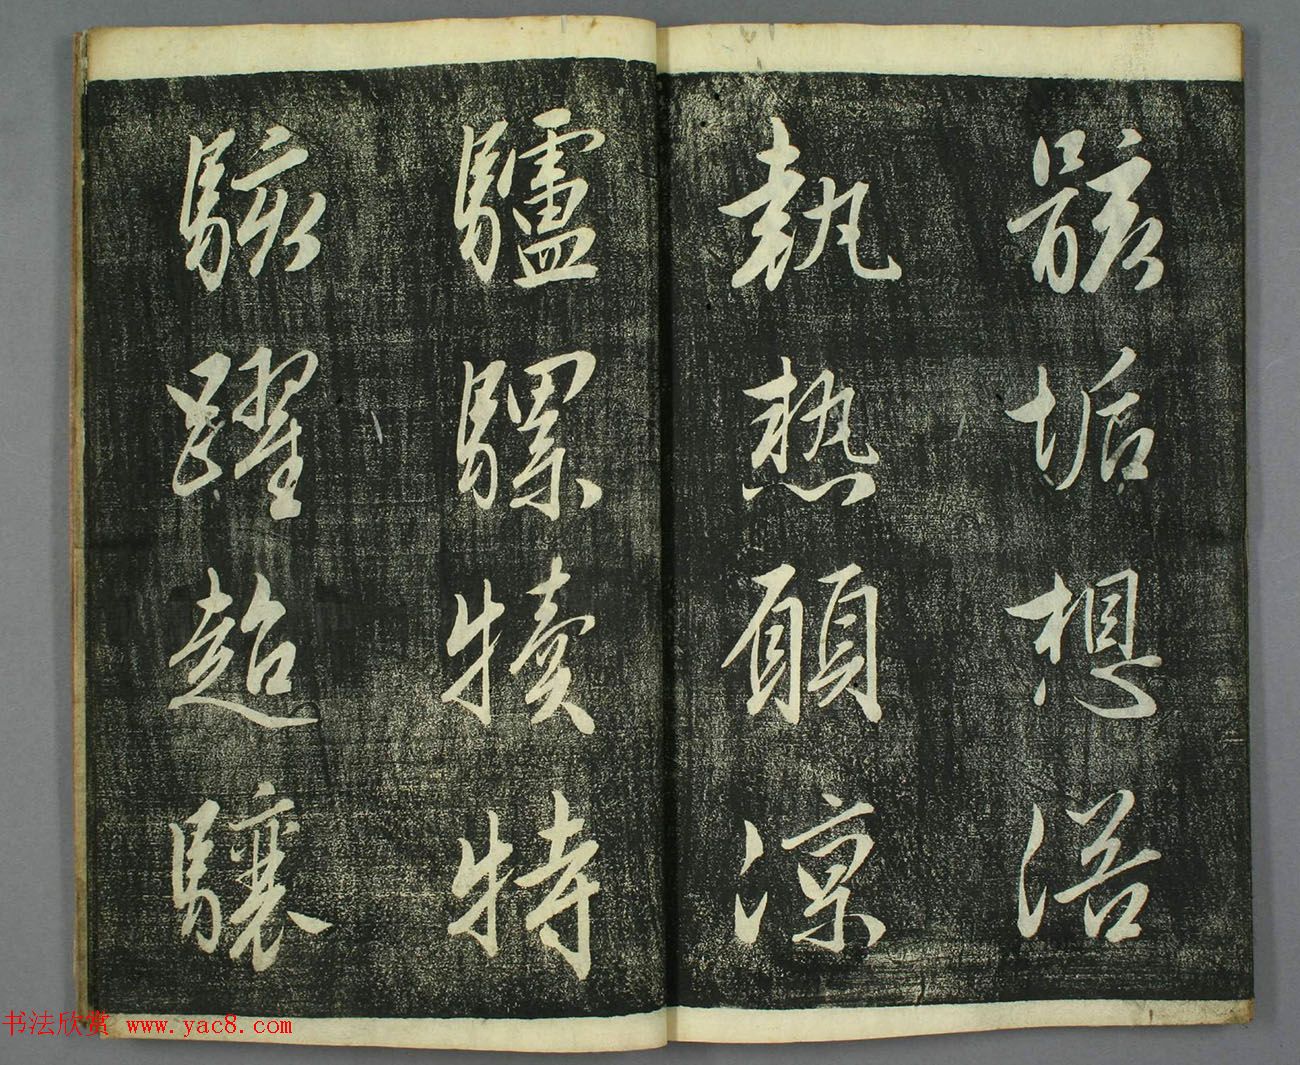 骸垢想浴
執熱願涼
驢騾犢特
駭躍超驤
书法欣赏 www.yac8.com